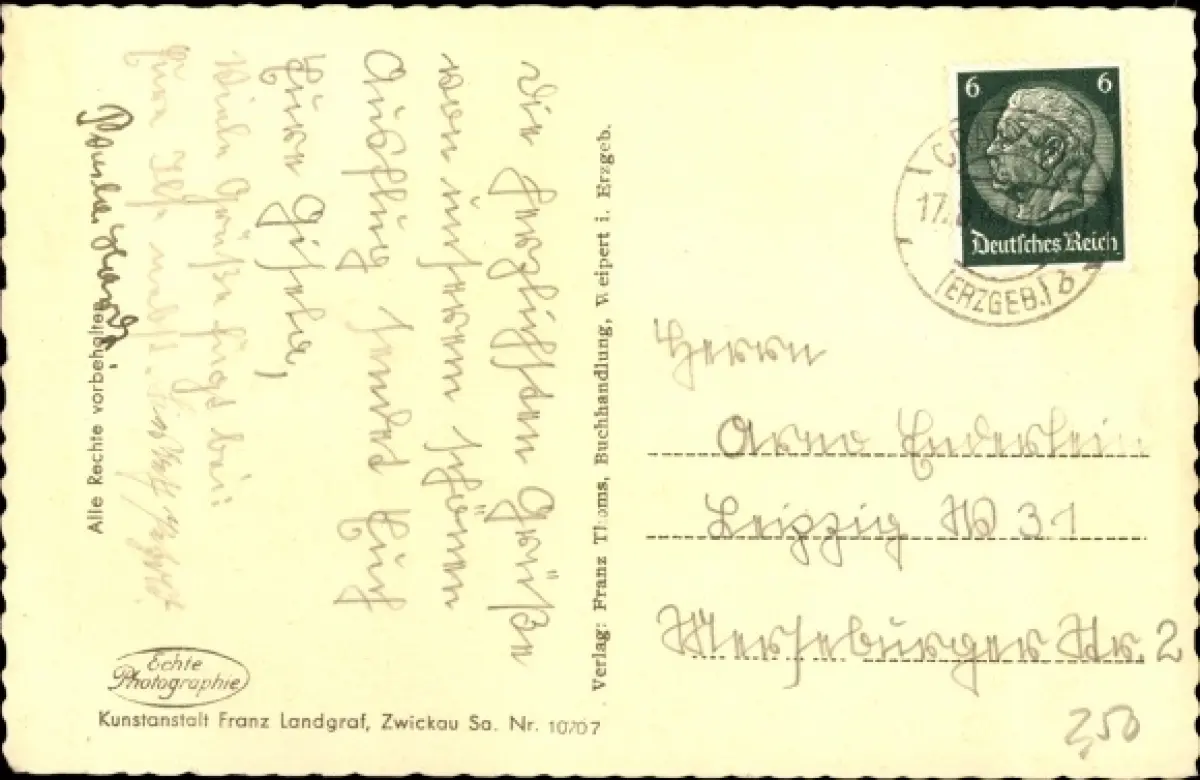 Die herzlichsten Grüße
von unserem schönen
Ausflug sendet Euch
Eure Gisela,
Viele Grüße fügt bei:
Eure
Alle Rechte vorbehalten
Echte
Photographie
Kunstanstalt Franz Landgraf, Zwickau Sa. Nr. 10707
Verlag: Franz Thoms, Buchhandlung, Weipert i. Erzgeb.
6 6
Deutsches Reich
17.
(ERZGEB.) b
Herrn
Arno Enderlein
Leipzig W 31
Merseburger Str. 2
2,50